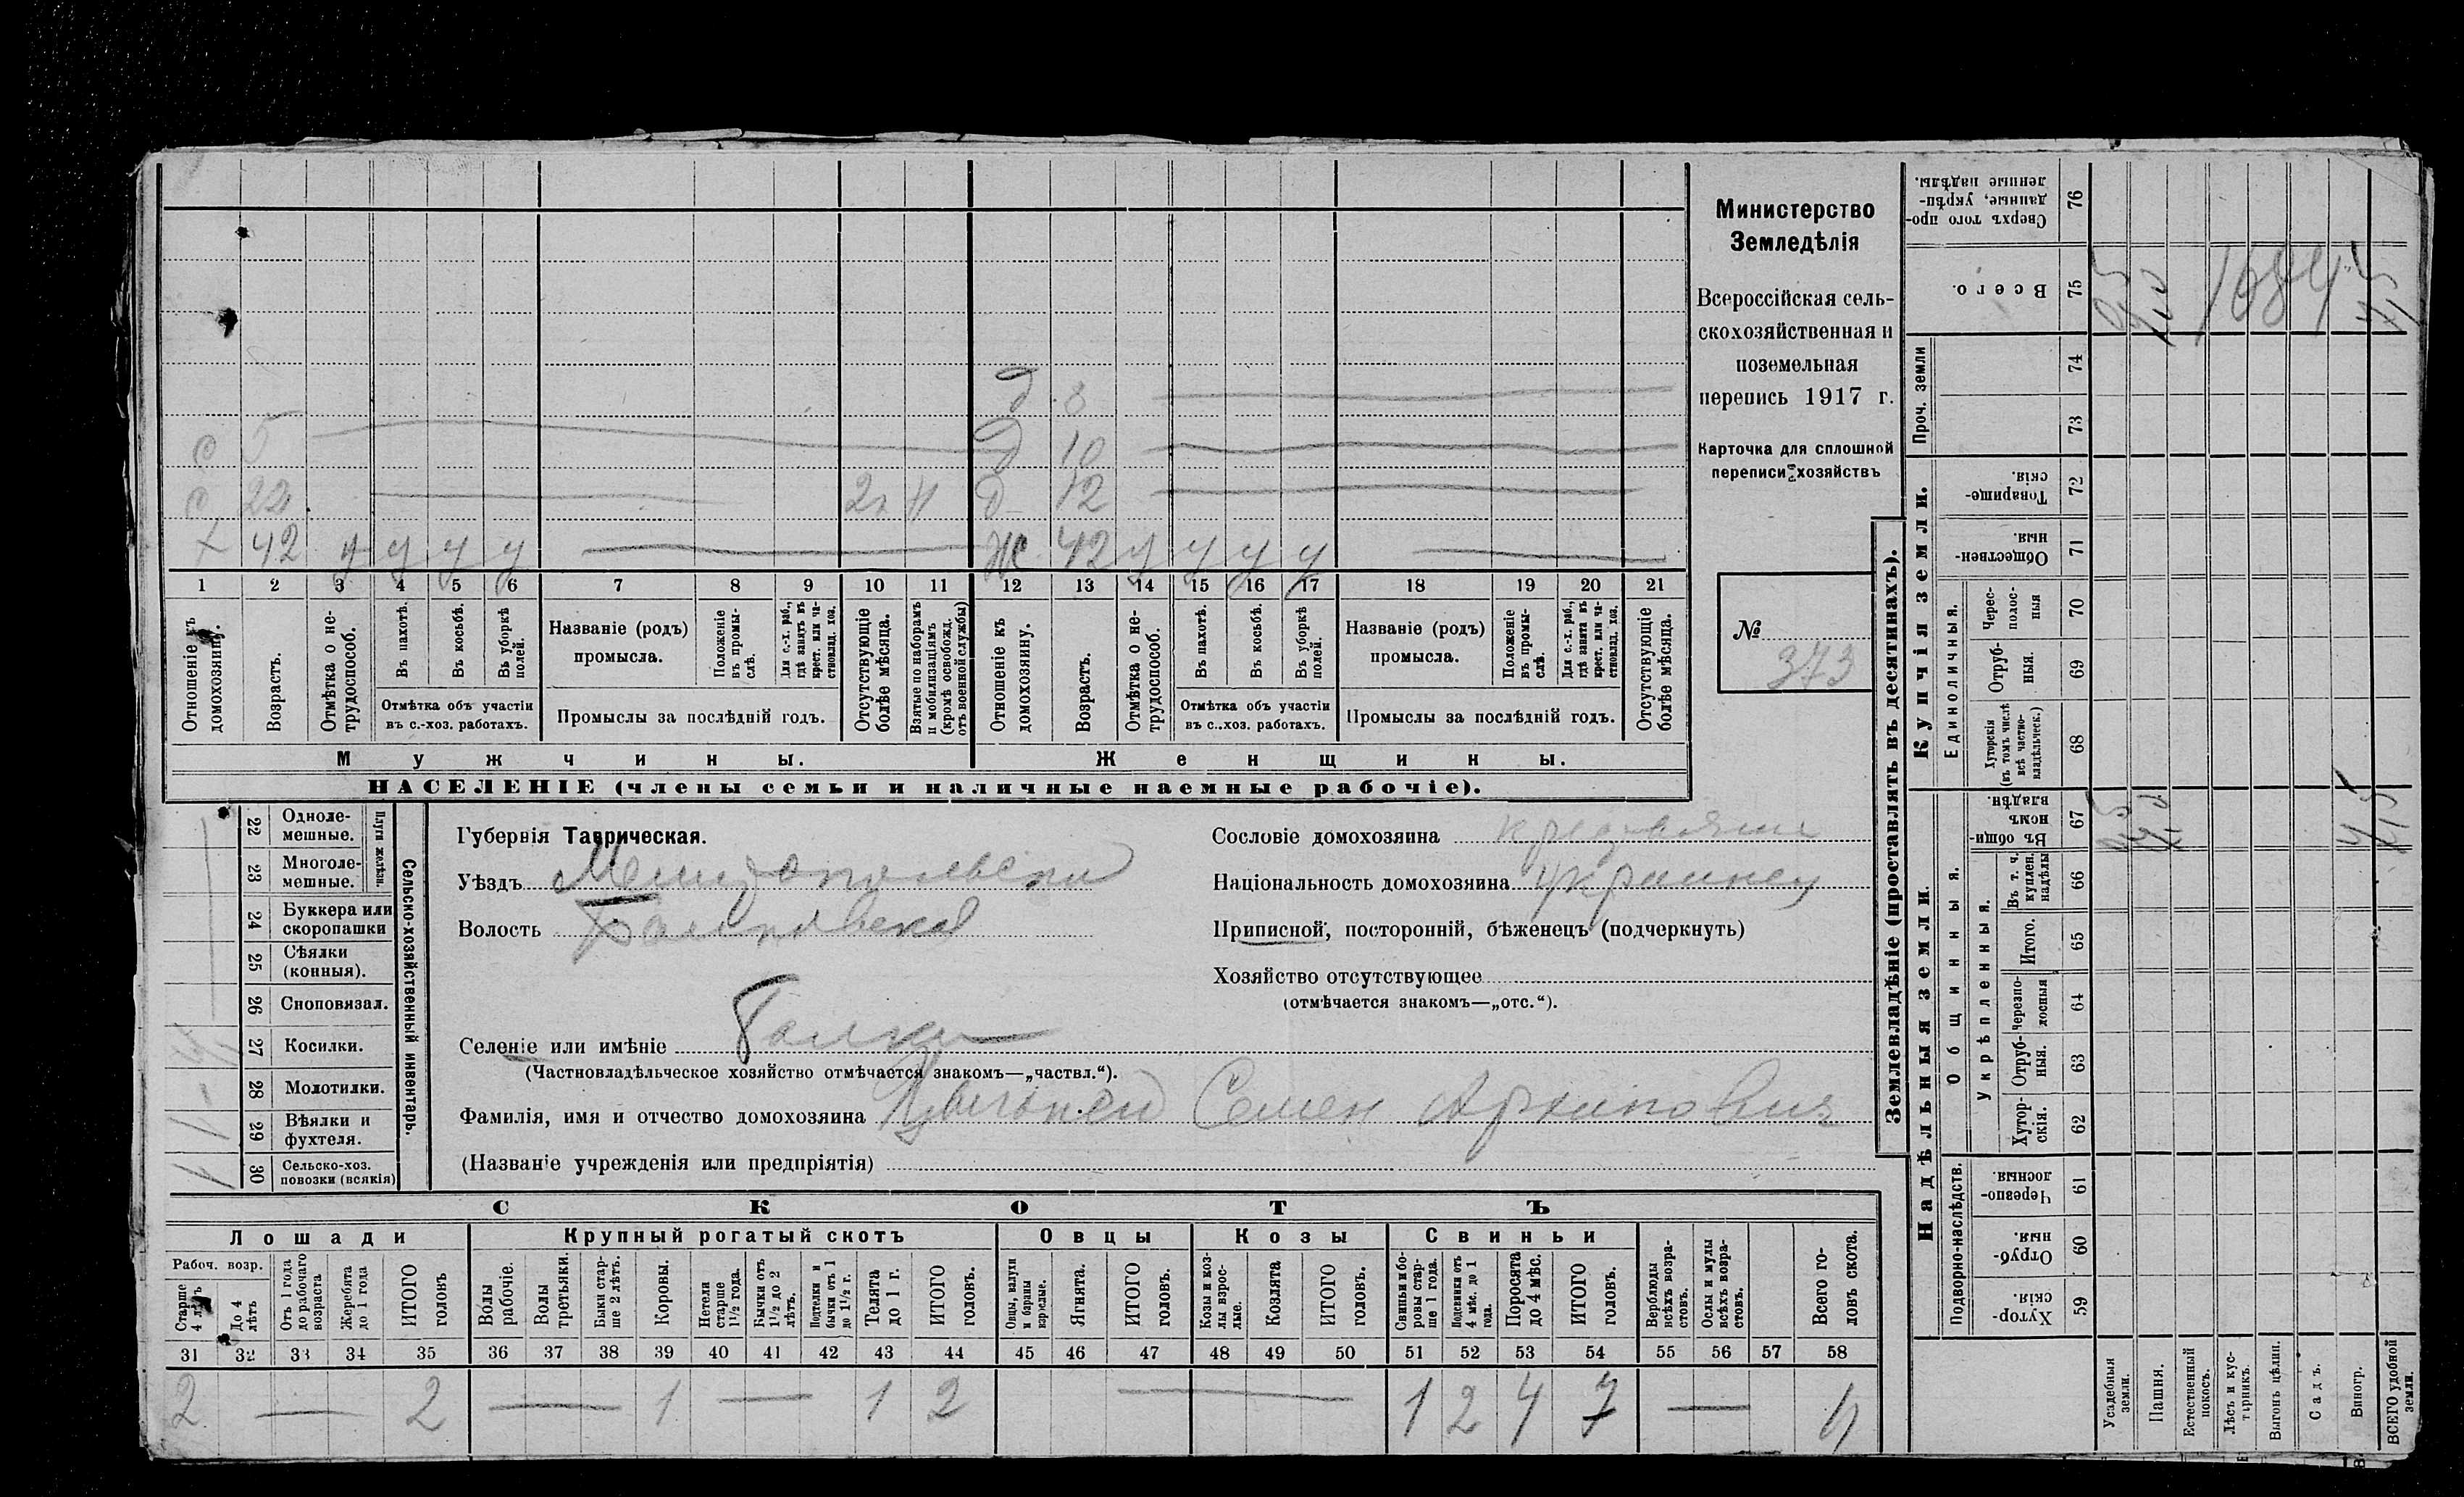 Министерство
Земледѣлія
Всероссійская сель-
скохозяйственная и
поземельная
перепись 1917 г.
Карточка для сплошной
переписи хозяйствъ
№
373
д 8
с 5 д 10
с 22 2 д 12
х 42 у у у у ж 42 у у у у
1 2 3 4 5 6 7 8 9 10 11 12 13 14 15 16 17 18 19 20 21
Отношеніе къ домохозяину.
Возрастъ.
Отмѣтка о не-трудоспособ.
Въ пахотѣ.
Въ косьбѣ.
Въ уборкѣ полей.
Отмѣтка объ участіи
въ с.-хоз. работахъ.
Названіе (родъ)
промысла.
Положеніе въ промы-слѣ.
Для с.-х. раб., гдѣ занятъ въ крест. или ча-стновлад. хоз.
Промыслы за послѣдній годъ.
Отсутствующіе болѣе мѣсяца.
Взятые по наборамъ и мобилизаціямъ (кромѣ освобожд. отъ военной службы)
Отношеніе къ домохозяину.
Возрастъ.
Отмѣтка о не-трудоспособ.
Въ пахотѣ.
Въ косьбѣ.
Въ уборкѣ полей.
Отмѣтка объ участіи
въ с..хоз. работахъ.
Названіе (родъ)
промысла.
Положеніе въ промы-слѣ.
Для с.-х. раб., гдѣ занята въ крест. или ча-стновлад. хоз.
Промыслы за послѣдній годъ.
Отсутствующіе болѣе мѣсяца.
Мужчины. Женщины.
НАСЕЛЕНІЕ (члены семьи и наличные наемные рабочіе).
Сельско-хозяйственный инвентарь.
Плуги желѣзн.
22 Одноле-мешные.
23 Многоле-мешные.
24 Буккера или скоропашки
25 Сѣялки (конныя).
26 Сноповязал.
27 Косилки.
28 Молотилки.
29 Вѣялки и фухтеля.
30 Сельско-хоз. повозки (всякія)
Губернія Таврическая.
Уѣздъ Мелитопольскій
Волость
Селеніе или имѣніе
(Частновладѣльческое хозяйство отмѣчается знакомъ—„частвл.“).
Фамилія, имя и отчество домохозяина Семен Архипович
(Названіе учрежденія или предпріятія)
Сословіе домохозяина
Національность домохозяина украинец
Приписной, посторонній, бѣженецъ (подчеркнуть)
Хозяйство отсутствующее
(отмѣчается знакомъ—„отс.“).
СКОТЪ
Лошади Крупный рогатый скотъ Овцы Козы Свиньи
Рабоч. возр.
Старше 4 лѣтъ
До 4 лѣтъ
Отъ 1 года до рабочаго возраста
Жеребята до 1 года
ИТОГО головъ
Волы рабочіе.
Волы третьяки.
Быки стар-ше 2 лѣтъ.
Коровы.
Нетели старше 1½ года.
Бычки отъ 1½ до 2 лѣтъ.
Подтелки и бычки отъ 1 до 1½ г.
Телята до 1 г.
ИТОГО головъ.
Овцы, валухи и бараны взрослые.
Ягнята.
ИТОГО головъ.
Козы и коз-лы взрос-лые.
Козлята
ИТОГО головъ.
Свиньи и бо-ровы стар-ше 1 года.
Подсвинки отъ 4 мѣс. до 1 года.
Поросята до 4 мѣс.
ИТОГО головъ.
Верблюды всѣхъ возра-стовъ.
Ослы и мулы всѣхъ возра-стовъ.
Всего го-ловъ скота.
31 32 33 34 35 36 37 38 39 40 41 42 43 44 45 46 47 48 49 50 51 52 53 54 55 56 57 58
2 2 1 1 2 1 2 4 7 11
Землевладѣніе (проставлять въ десятинахъ).
Надѣльныя земли. Купчія земли. Проч. земли
Подворно-наслѣдств.
Общинныя.
Укрѣпленныя.
Единоличныя.
76 Сверхъ того про-данные, укрѣп-ленные надѣлы.
75 Всего.
74
73
72 Товарище-скія.
71 Обществен-ныя.
70 Черес-полос-ныя
69 Отруб-ныя.
68 Хуторскія (въ томъ числѣ всѣ частно-владѣльческ.)
67 Въ общи-номъ владѣн.
66 Въ т. ч. куплен. надѣлы
65 Итого.
64 Черезпо-лосныя
63 Отруб-ныя.
62 Хутор-скія.
61 Черезпо-лосныя
60 Отруб-ныя.
59 Хутор-скія.
Усадебныя земли.
Пашня.
Естественный покосъ.
Лѣсъ и кус-тарникъ.
Выгонъ цѣлин.
Садъ.
Виногр.
ВСЕГО удобной земли.